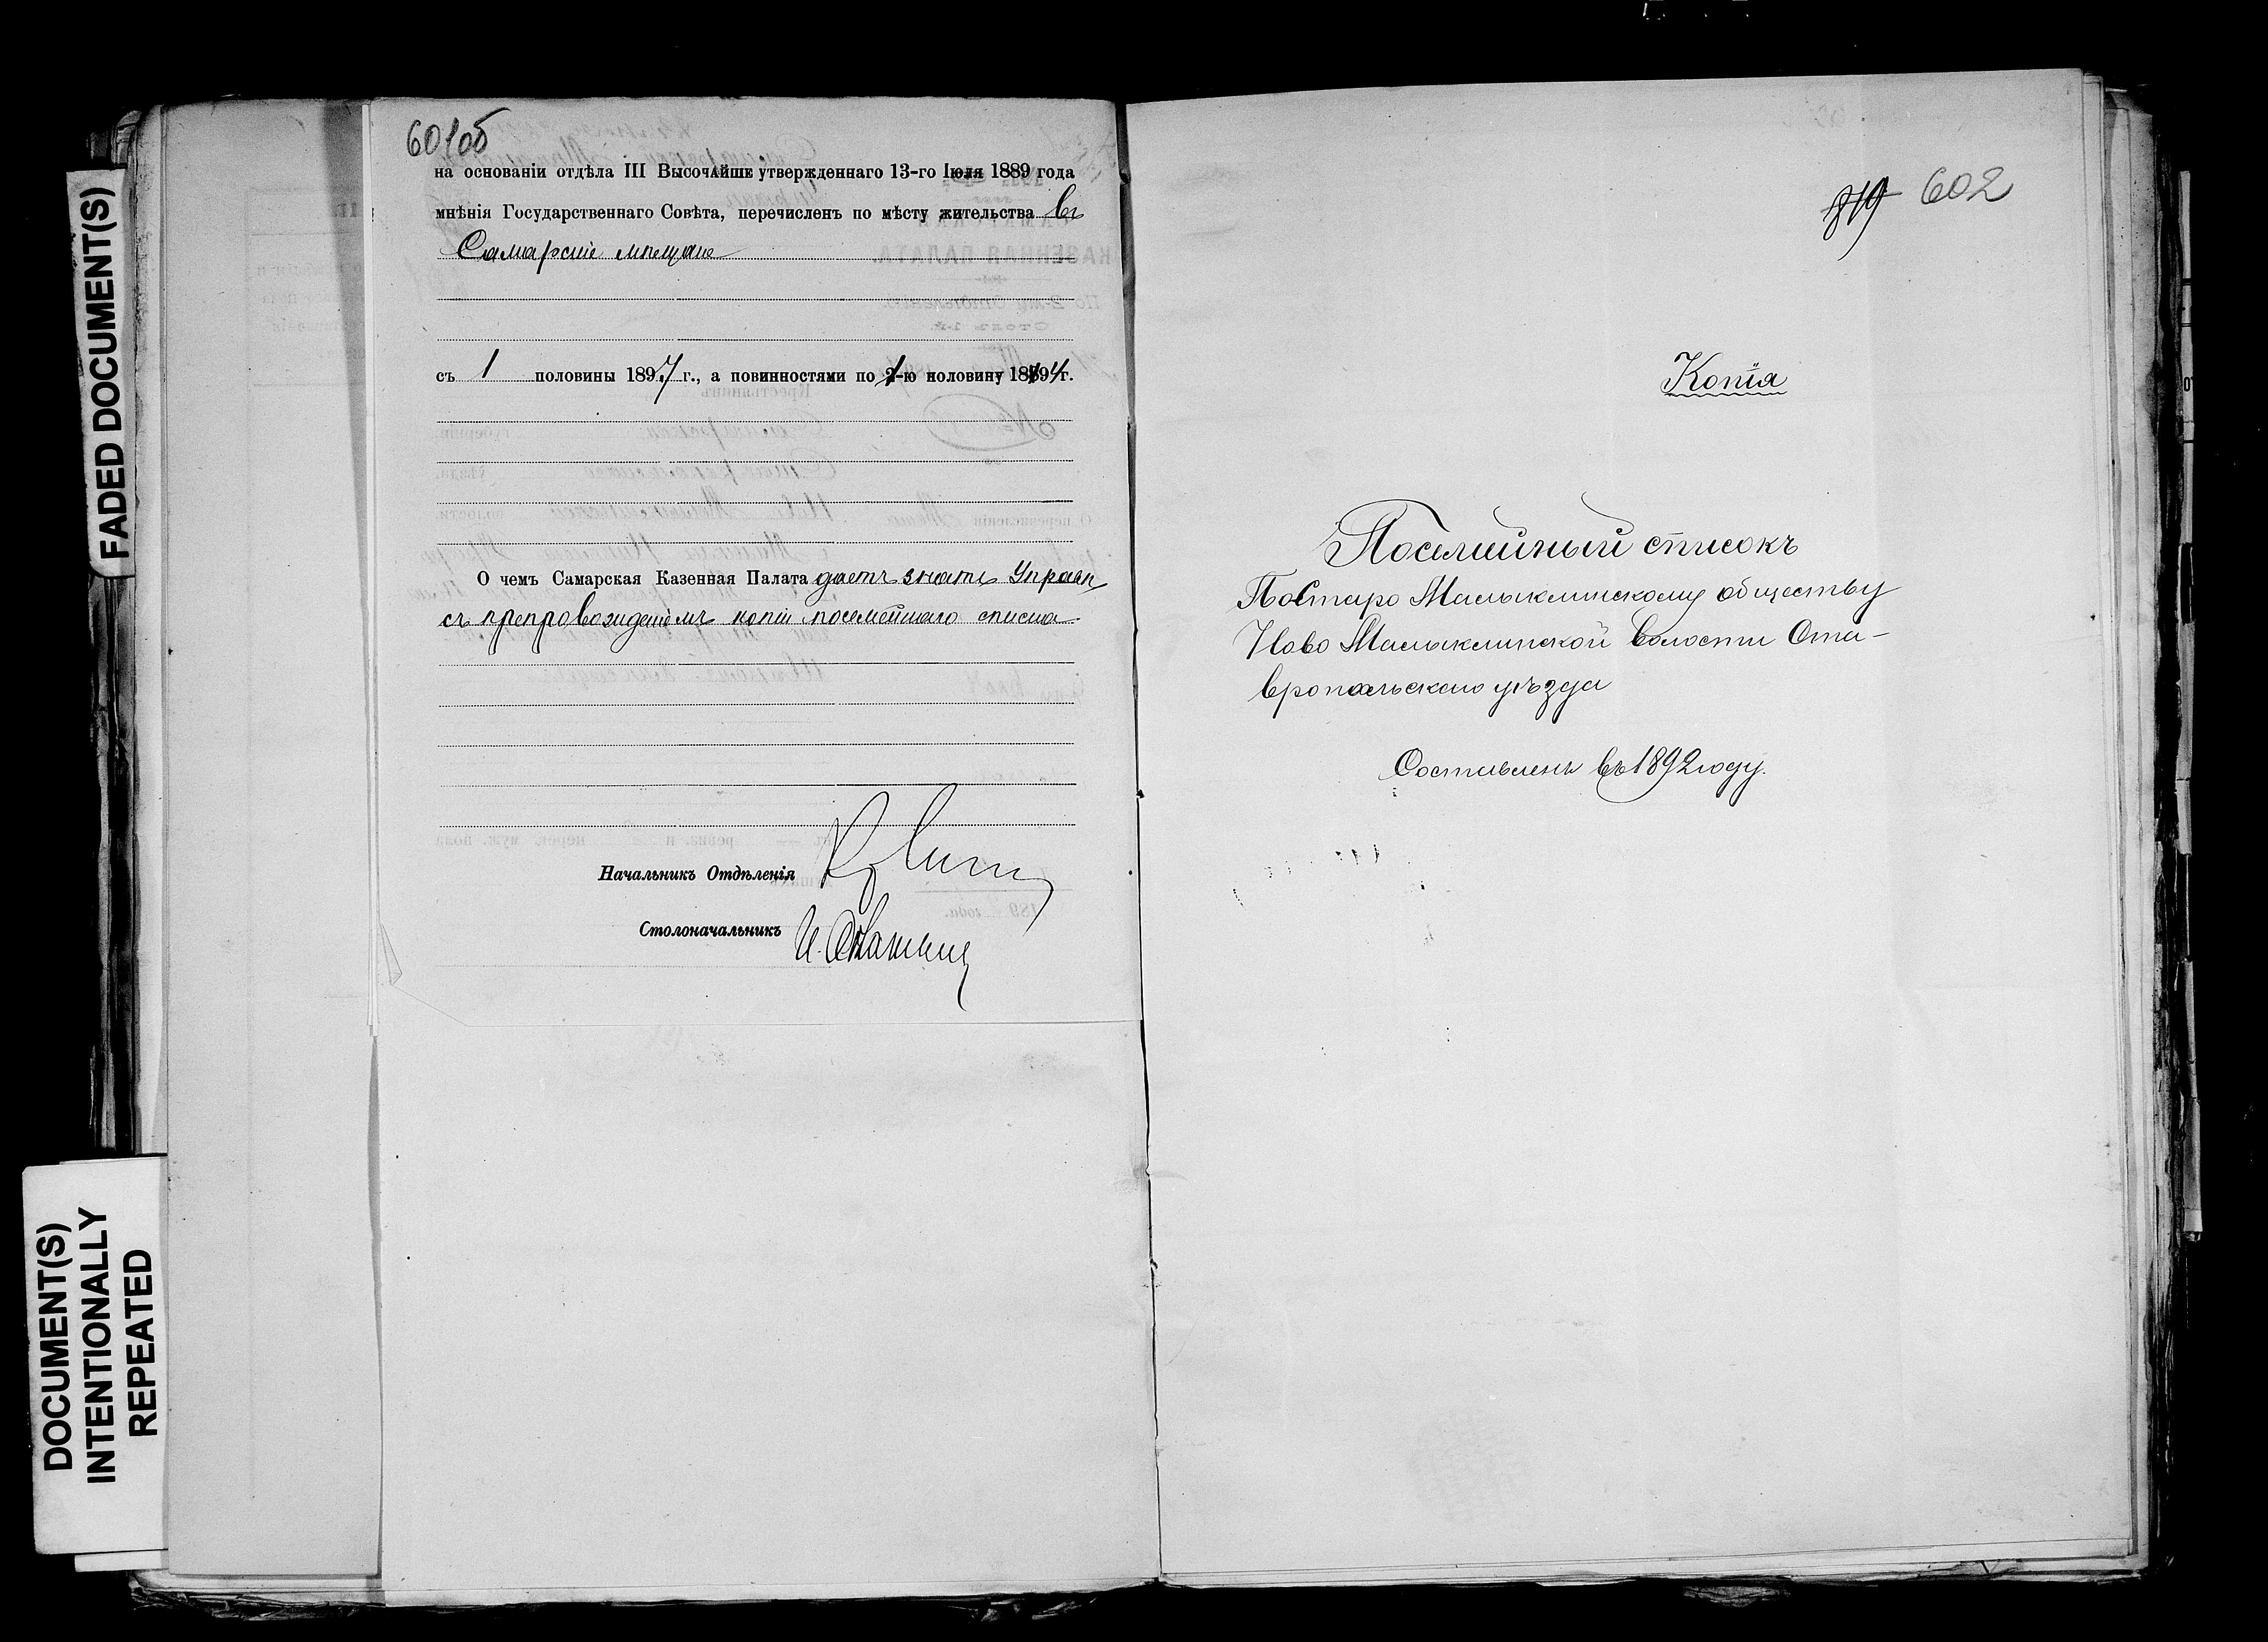 FADED DOCUMENT(S)
DOCUMENT(S)
INTENTIONALLY
REPEATED
601об
на основаніи отдѣла III Высочайше утвержденнаго 13-го Іюля 1889 года
мнѣнія Государственнаго Совѣта, перечисленъ по мѣсту жительства въ
Самарскіе мѣщане
съ 1 половины 1897 г., а повинностями по 1-ю половину 1894 г.
О чемъ Самарская Казенная Палата даетъ знать Управѣ
съ препровожденіемъ копіи посемейнаго списка
Начальникъ Отдѣленія
Столоначальникъ
819 602
Копія
Посемейный списокъ
По Старо Малыклинскому обществу
Ново Малыклинской волости Ста-
вропольскаго уѣзда
Составленъ въ 1892 году.